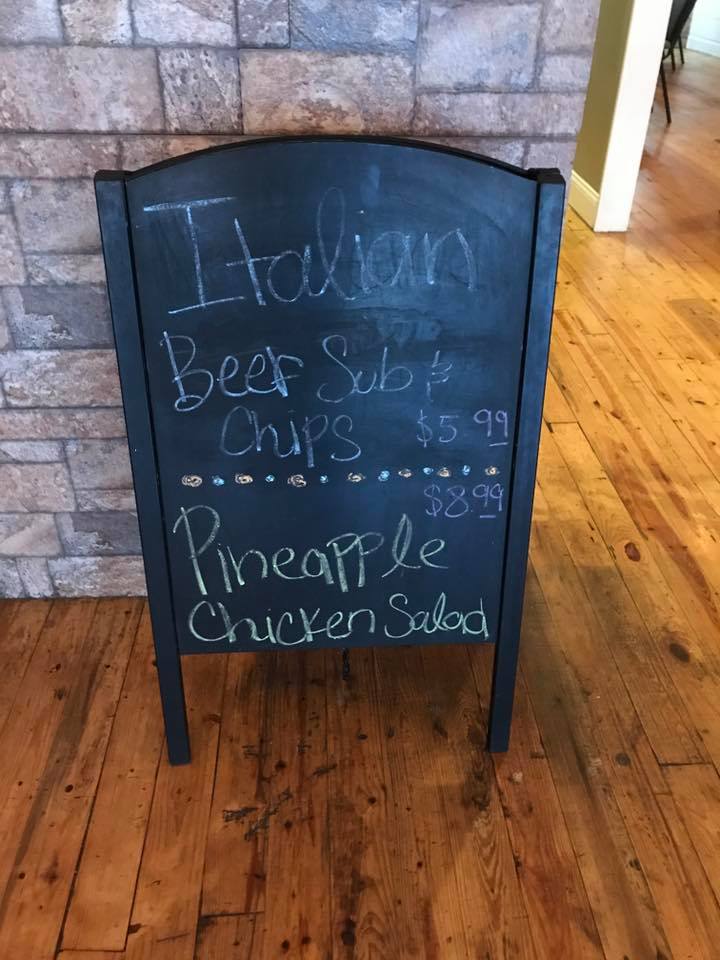 Italian
Beef Sub &
Chips $5.99
$8.99
Pineapple
Chicken Salad